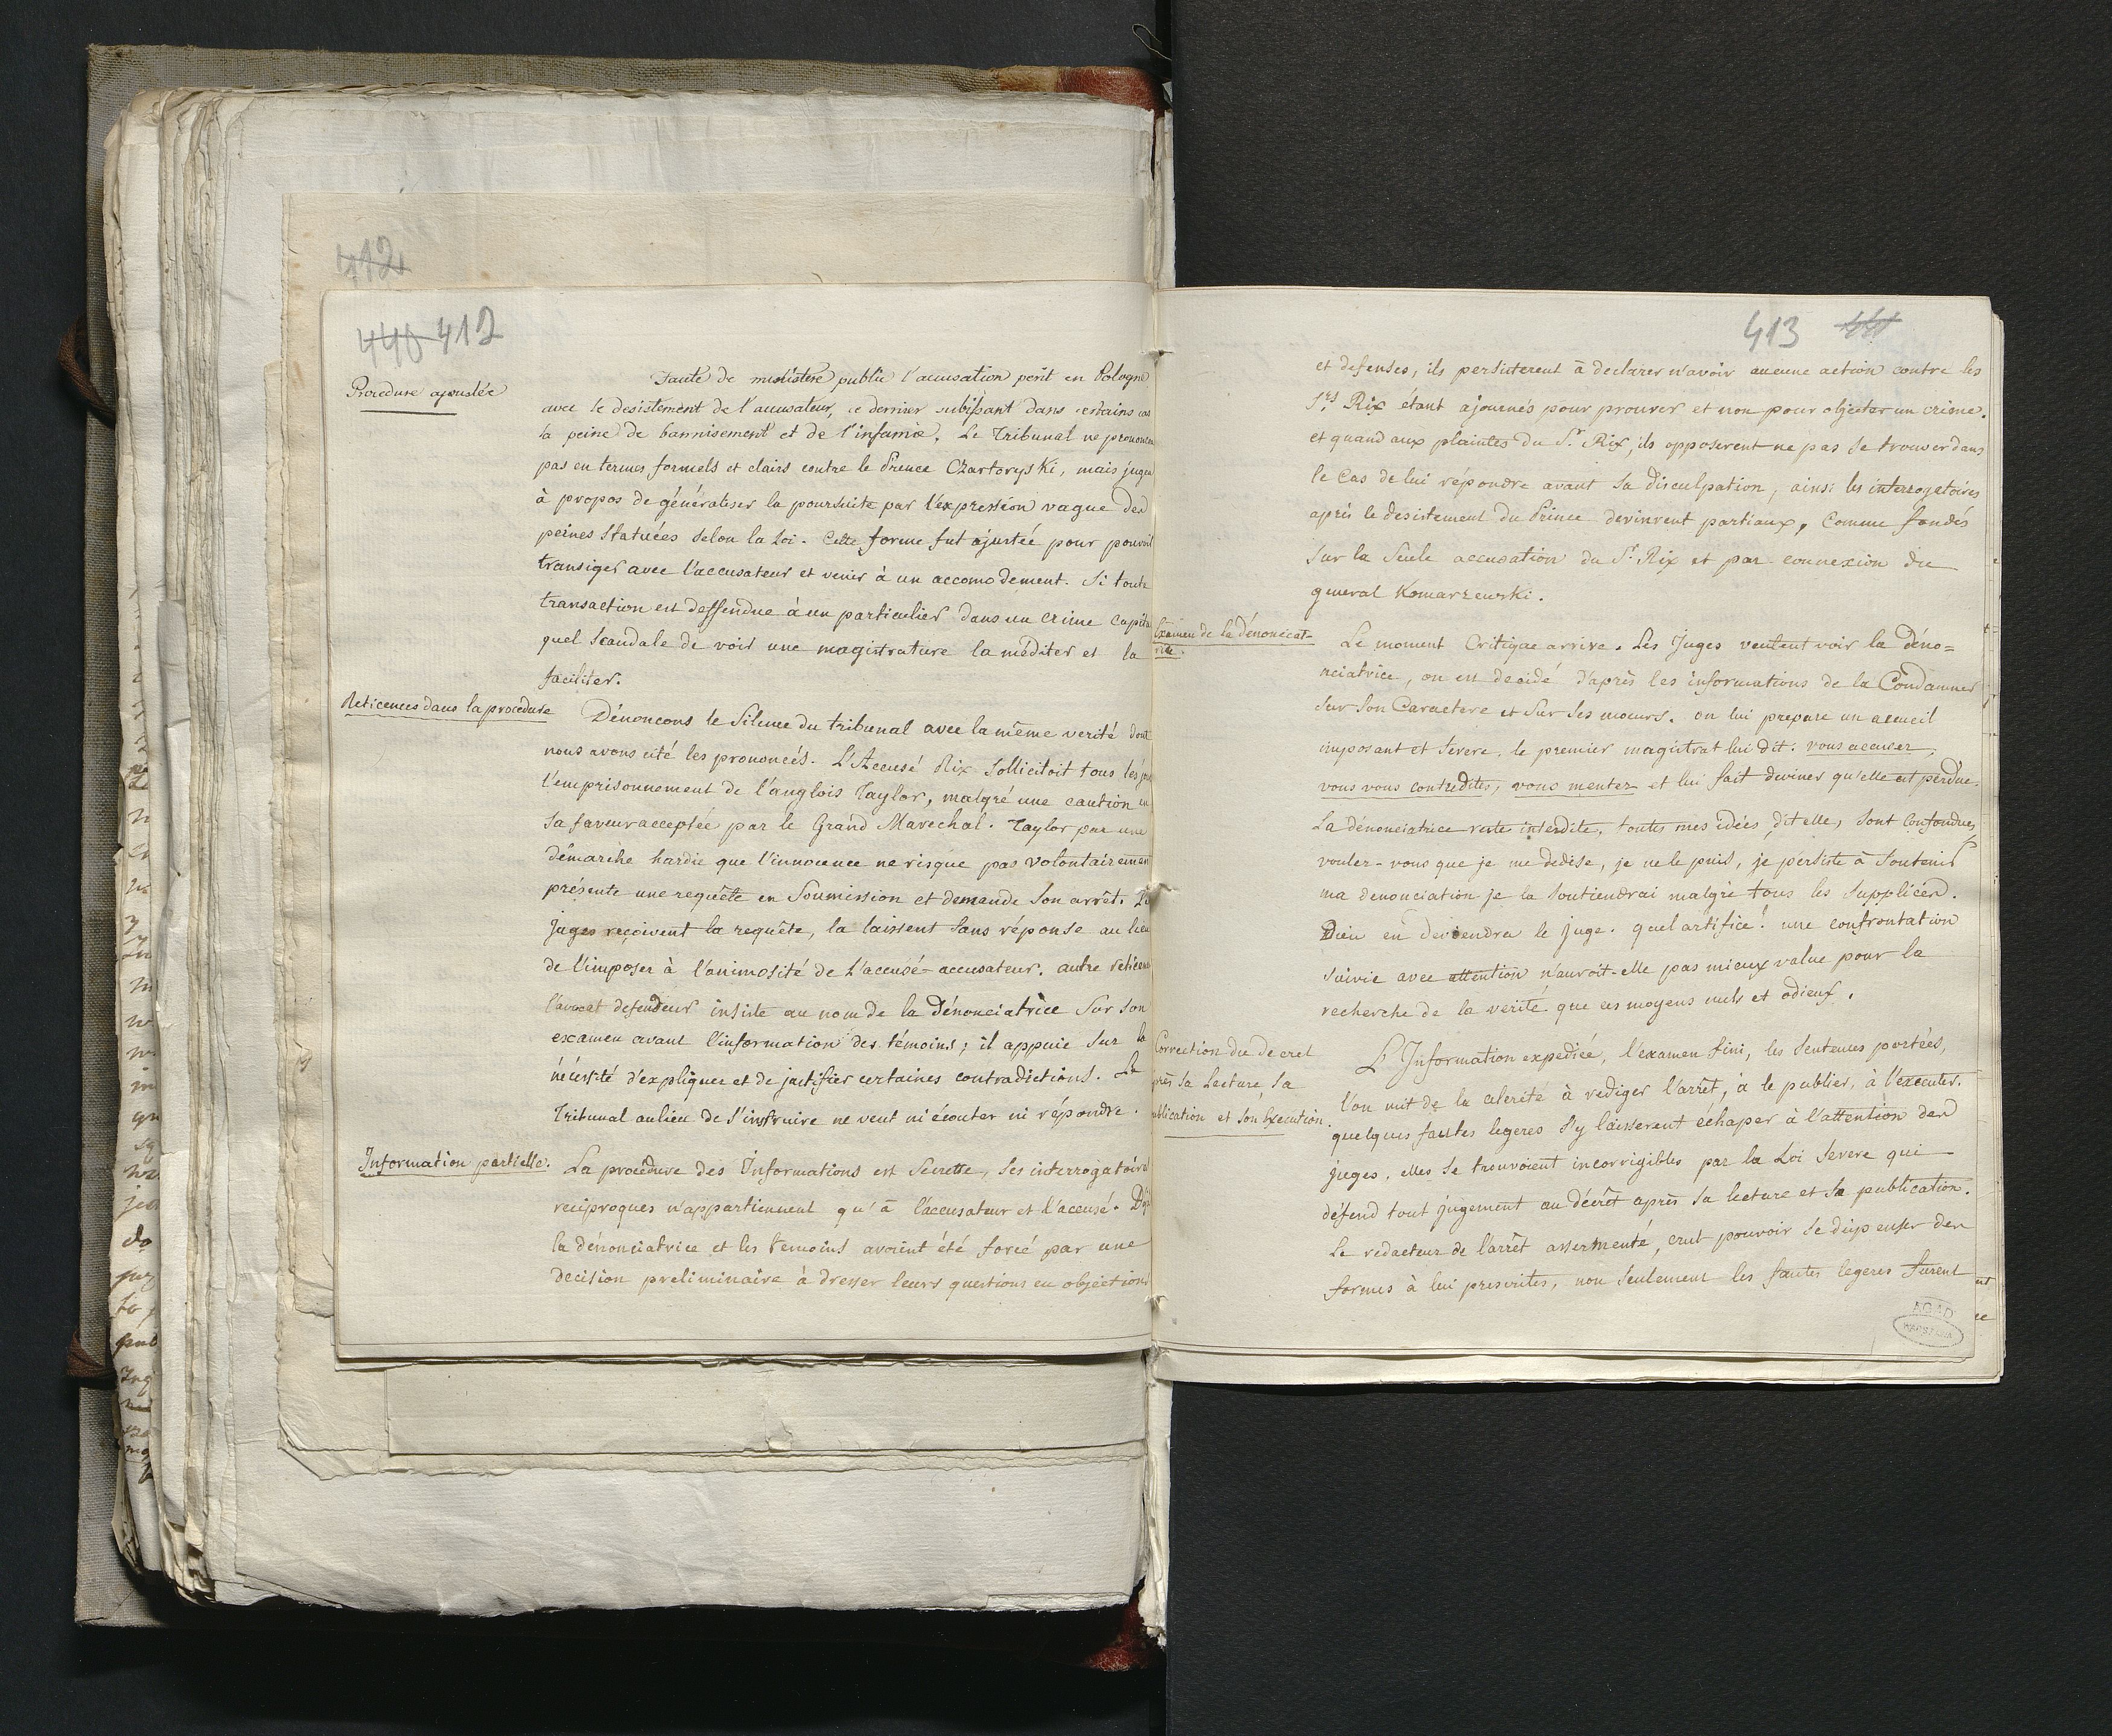 412
440 412
Procedure ajoustée
Faute de ministere public l'accusation perit en Pologne
avec le desistement de l'accusateur, ce dernier subissant dans certains cas
la peine de bannisement et de l'infamie. Le Tribunal ne prononca
pas en termes formels et clairs contre le Prince Czartoryski, mais jugea
à propos de généraliser la poursuite par l'expression vague des
peines Statuées selon la Loi. Cette forme fut ajustée pour pouvoir
transiger avec l'accusateur et venir à un accomodement. Si toute
transaction est deffendue à un particulier dans un crime capital
quel Scandale de voir une magistrature la méditer et la
faciliter.
Reticences dans la procedure
Dénoncons le Silence du tribunal avec la même verité dont
nous avons cité les prononcés. L'Accusé Rix Sollicitoit tous les jours
l'emprisonnement de l'anglois Taylor, malgré une caution en
sa faveur acceptée par le Grand Marechal. Taylor par une
démarche hardie que l'innocence ne risque pas volontairement
présente une requête en Soumission et demande Son arrêt. Les
juges reçoivent la requête, la laissent sans réponse au lieu
de l'imposer à l'animosité de L'accusé-accusateur. autre reticence
l'avocat defendeur insiste au nom de la Dénonciatrice Sur son
examen avant l'information des témoins; il appuie Sur la
nécessité d'expliquer et de justifier certaines contradictions. Le
Tribunal aulieu de s'instruire ne veut ni écouter ni répondre.
Information partielle.
La procédure des Informations est Secrette, Ses interrogatoires
reciproques n'appartiennent qu'à l'accusateur et l'accusé. Déja
la dénonciatrice et les temoins avoient été forcé par une
decision preliminaire à dresser leurs questions en objections
413
et defenses, ils persisterent à declarer n'avoir aucune action contre les
Srs Rix étant ajournés pour prouver et non pour objecter un crime.
et quand aux plaintes du Sr. Rix, ils opposerent ne pas se trouver dans
le Cas de lui répondre avant sa disculpation, ainsi les interrogatoires
après le desistement du Prince devinrent partiaux, Comme fondés
sur la Seule accusation du Sr. Rix et par connexion du
general Komarzewski.
Examen de la dénonciat-
rice.
Le moment Critique arrive. Les Juges veulent voir la déno=
nciatrice, on est decidé d'après les informations de la Condamner
Sur Son Caractere et Sur Ses moeurs. on lui prepare un accueil
imposant et Severe, le premier magistrat lui dit: vous accusez,
vous vous contredites, vous mentez et lui fait deviner qu'elle est perdue.
La dénonciatrice reste interdite, toutes mes idées, dit elle, sont confondues,
voulez-vous que je me dedise, je ne le puis, je persiste à Soutenir
ma denonciation je la Soutiendrai malgré tous les Supplices.
Dieu en deviendra le juge. quel artifice! une confrontation
suivie avec attention n'auroit-elle pas mieux value pour la
recherche de la verité que ces moyens nuls et odieux.
Correction du decret
près sa Lecture sa
ublication et son Execution.
L'Information expediée, l'examen fini, les Sentences portées,
l'on mit de la celerité à rediger l'arrêt, à le publier, à l'executer.
quelques fautes legeres s'y laisserent échaper à l'attention des
juges, elles se trouvoient incorrigibles par la Loi Severe qui
défend tout jugement au décret après sa lecture et sa publication.
Le redacteur de l'arrêt assermenté, crut pouvoir se dispenser des
formes à lui prescrites, non Seulement les fautes legeres furent
AGAD
WARSZAWA